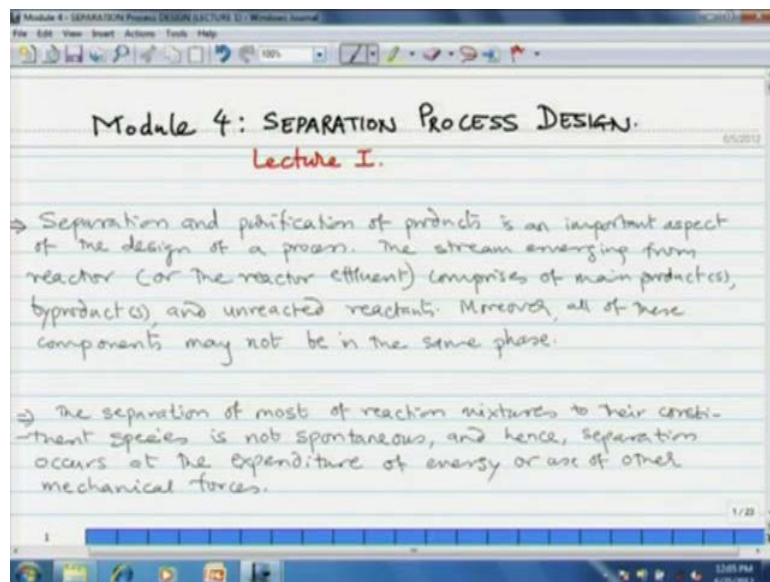 Module 4 - SEPARATION Process DESIGN (LECTURE 1) - Windows Journal
File Edit View Insert Actions Tools Help
100%
Module 4: SEPARATION PROCESS DESIGN.
6/5/2012
Lecture I.
⇒ Separation and purification of products is an important aspect
of the design of a process. The stream emerging from
reactor (or the reactor effluent) comprises of main product(s),
byproduct(s), and unreacted reactants. Moreover, all of these
components may not be in the same phase.
⇒ The separation of most of reaction mixtures to their consti-
-tuent species is not spontaneous, and hence, separation
occurs at the expenditure of energy or use of other
mechanical forces.
1 / 23
1
12:05 PM